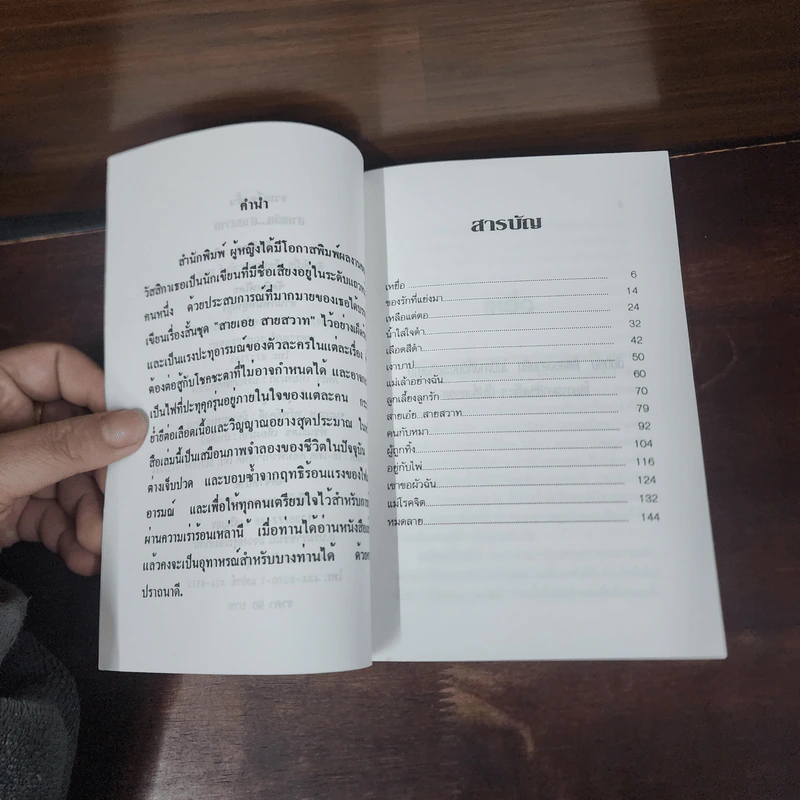 คำนำ
สำนักพิมพ์ ผู้หญิงได้มีโอกาสพิมพ์ผลงาน
วัสสิกาเธอเป็นนักเขียนที่มีชื่อเสียงอยู่ในระดับ
คนหนึ่ง ด้วยประสบการณ์ที่มากมายของเธอ
เขียนเรื่องสั้นชุด "สายเอย สายสวาท" ไว้อย่าง
และเป็นแรงปะทุอารมณ์ของตัวละครในแต่ละเรื่อง
ต้องต่อสู้กับโชคชะตาที่ไม่อาจกำหนดได้
เป็นไฟที่ปะทุคุกรุ่นอยู่ภายในใจของแต่ละคน
ย่ำยีต่อเลือดเนื้อและวิญญาณอย่างสุดประมาณ
สือเล่มนี้เป็นเสมือนภาพจำลองของชีวิตในปัจจุบัน
ต่างเจ็บปวด และบอบช้ำจากฤทธิ์ร้อนแรงของ
อารมณ์ และเพื่อให้ทุกคนเตรียมใจไว้สำหรับ
ผ่านความเร่าร้อนเหล่านี้ เมื่อท่านได้อ่านหนังสือ
แล้วคงจะเป็นอุทาหรณ์สำหรับบางท่านได้
ปราถนาดี.
สารบัญ
เหยื่อ 6
ของรักที่แย่งมา 14
เหลือแต่ตอ 24
น้ำใสใจดำ 32
เลือดสีดำ 42
เงาบาป 50
แม่เล้าอย่างฉัน 60
ลูกเลี้ยงลูกรัก 70
สายเอ๋ย...สายสวาท 79
คนกับหมา 92
ผู้ถูกทิ้ง 104
อยู่กับไฟ 116
เขาขอผัวฉัน 124
แม่โรคจิต 132
หมดลาย 144